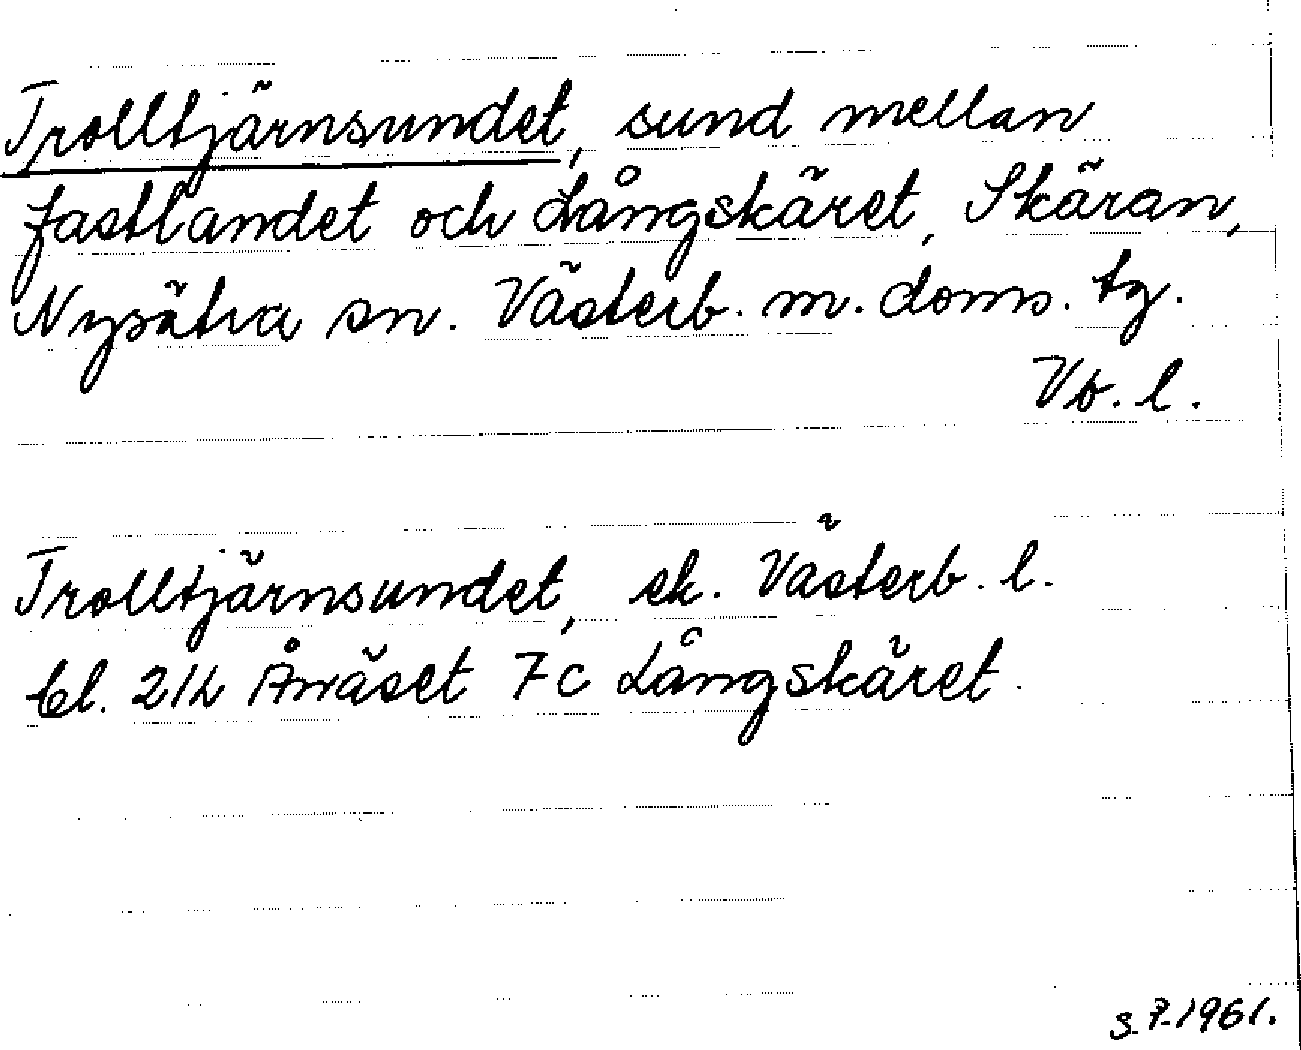 Trolltjärnsundet, sund mellan
fastlandet och Långskäret, Skäran,
Nysätra sn. Västerb. m. doms. tg.
Vb. l.
Trolltjärnsundet, ek. Västerb. l.
bl. 21L Ånäset 7c Långskäret.
S.P. 1961.